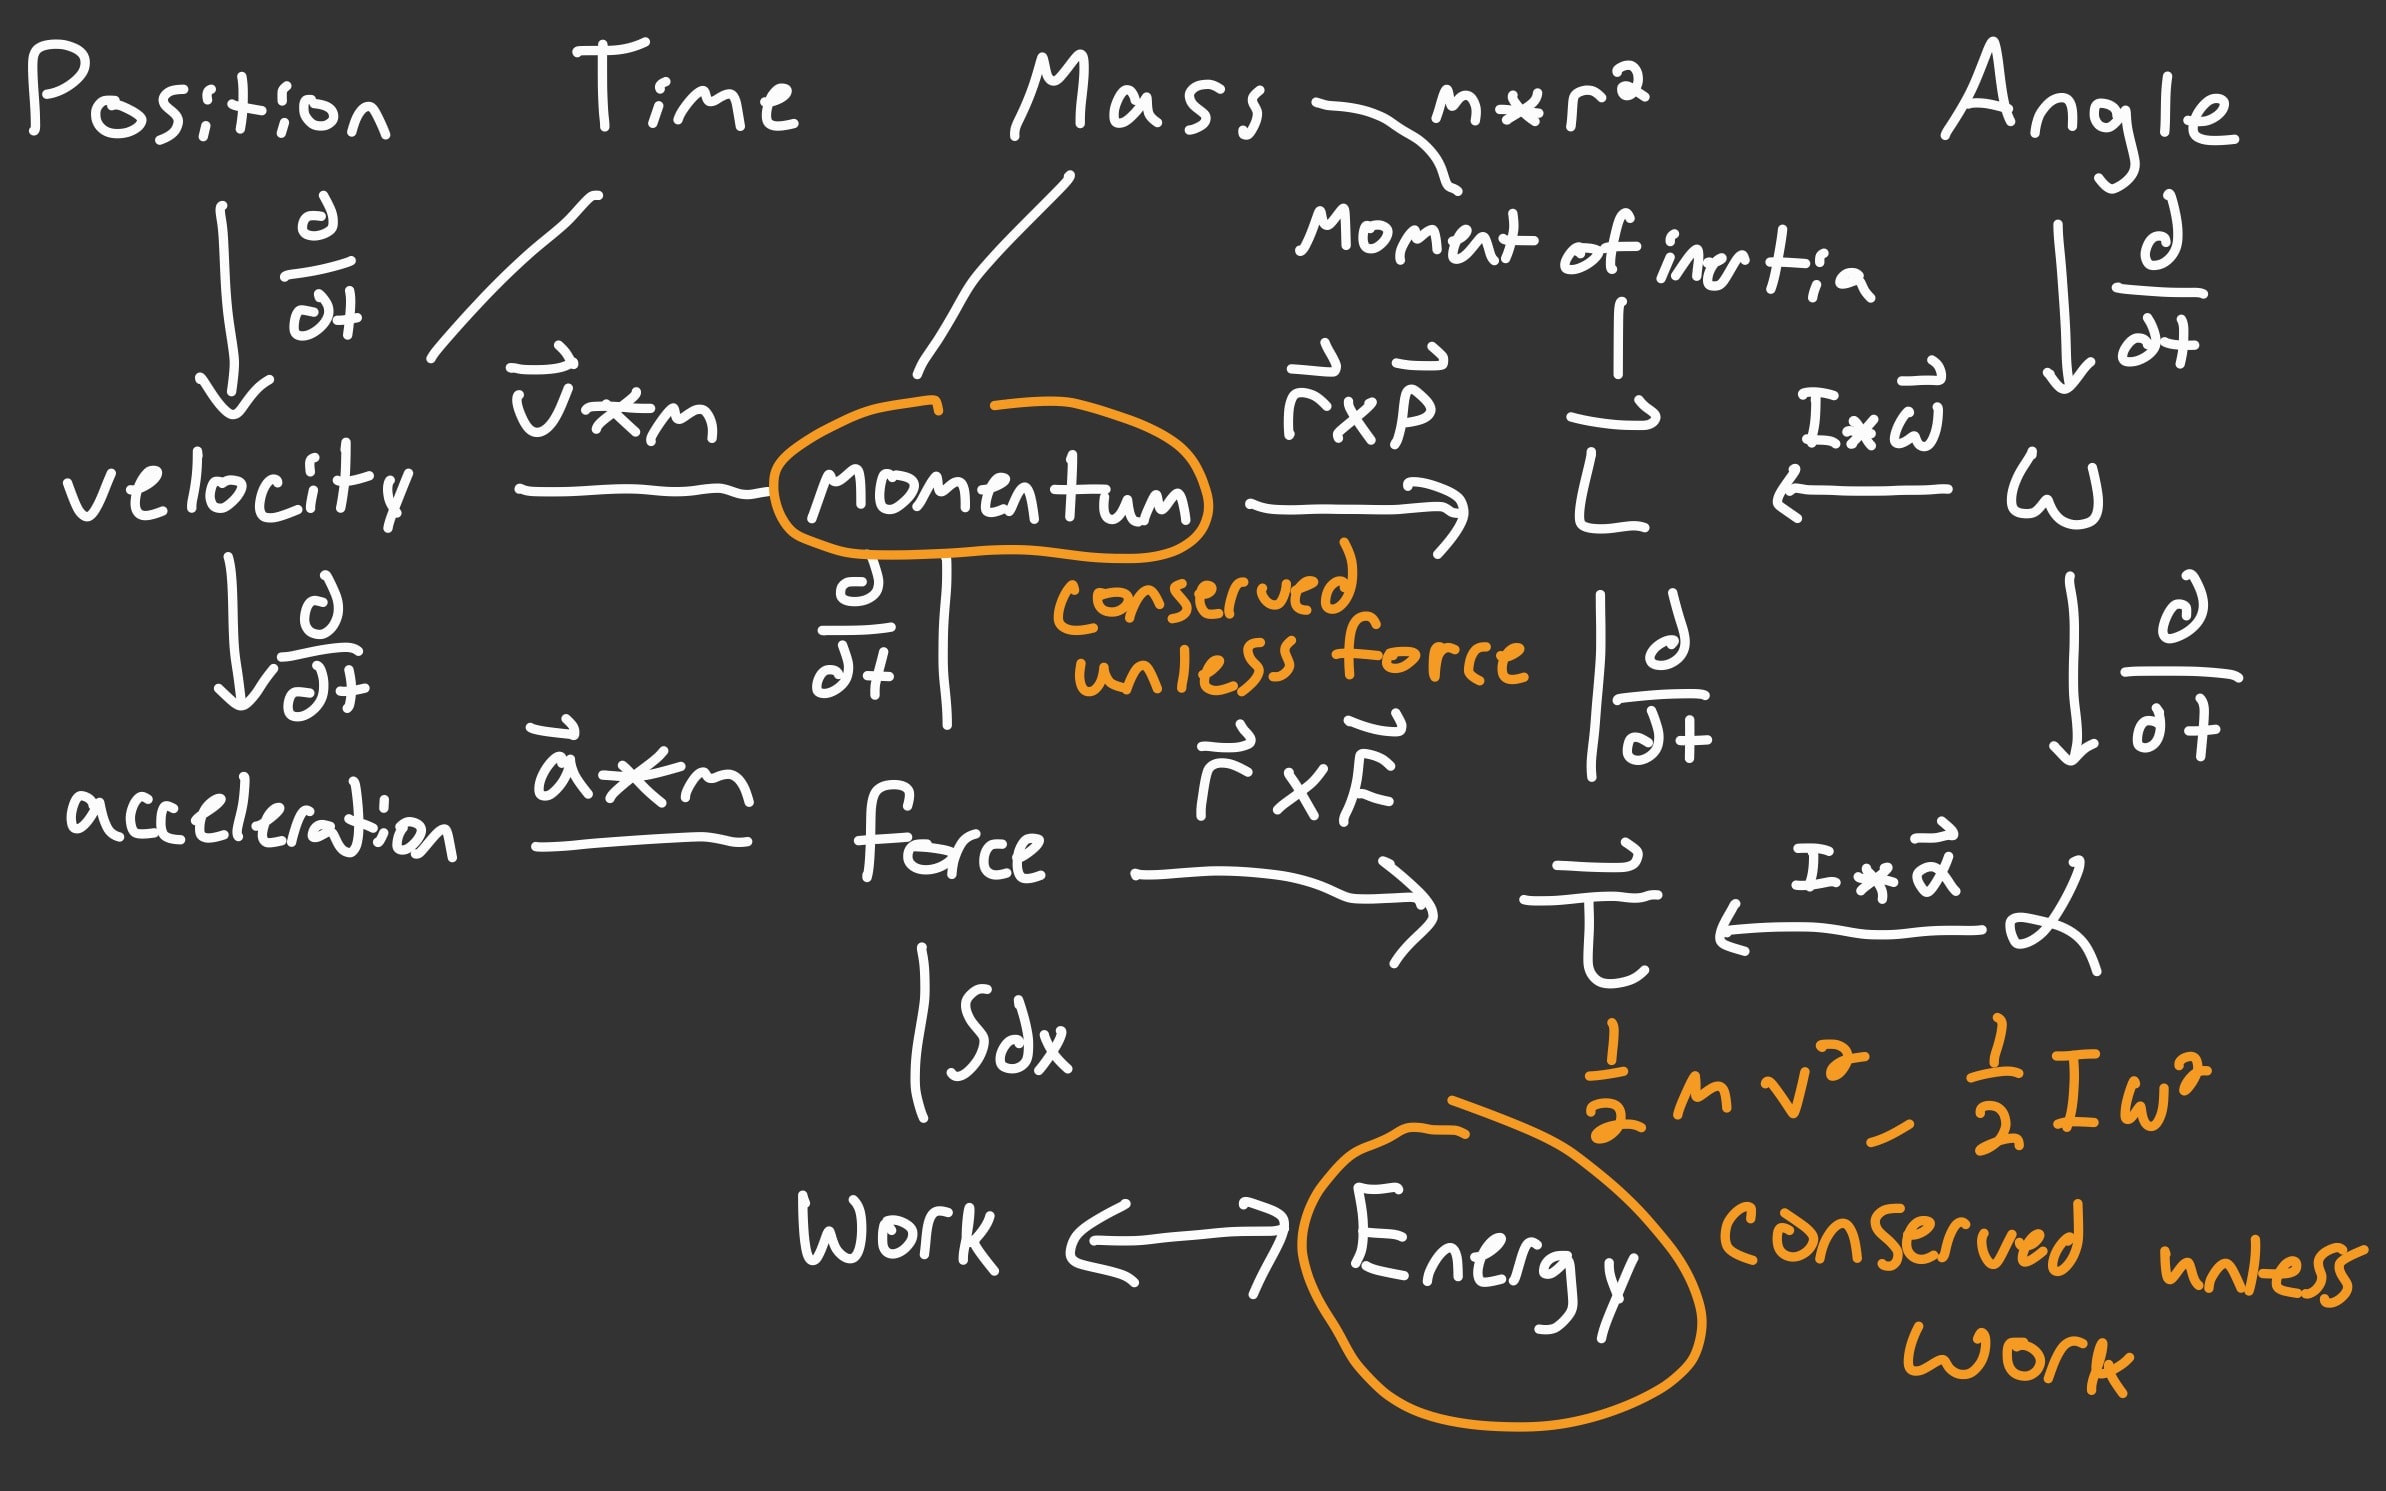 Position Time Mass m*r² Angle
d/dt
Moment of inertia
d/dt
v⃗*m
r⃗xP⃗
I*ω⃗
velocity momentum L⃗ ω
conserved
unless force
d/dt
d/dt
d/dt
d/dt
a⃗*m
r⃗xF⃗
I*α⃗
acceleration force τ⃗ α
∫dx
1/2 m v², 1/2 I ω²
Work Energy
conserved unless
work